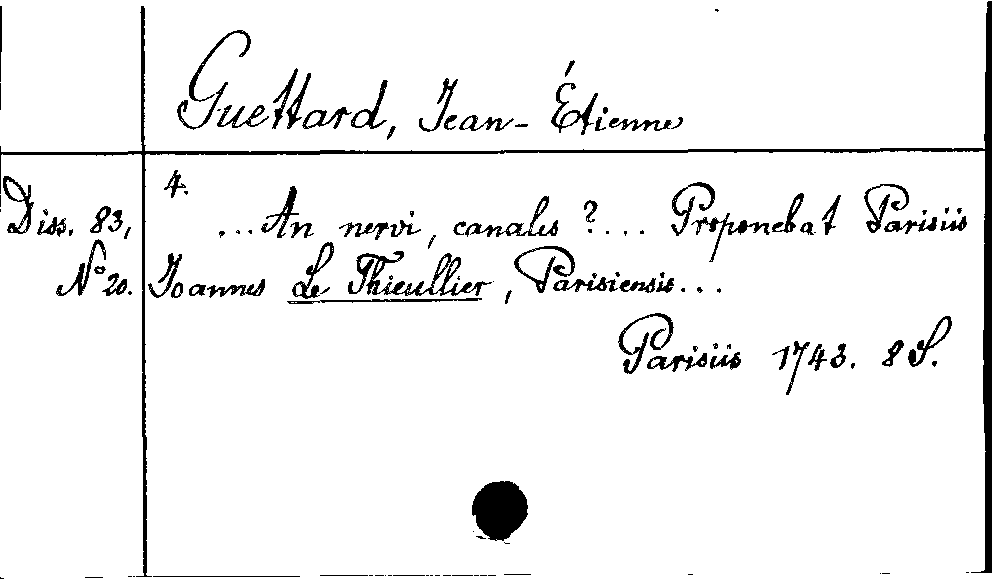 Guettard, Jean-Étienne
4.
Diss. 83, ... An nervi, canales ? ... Proponebat Parisiis
No 20. Joannes Le Thieullier, Parisiensis ...
Parisiis 1743. 8 S.